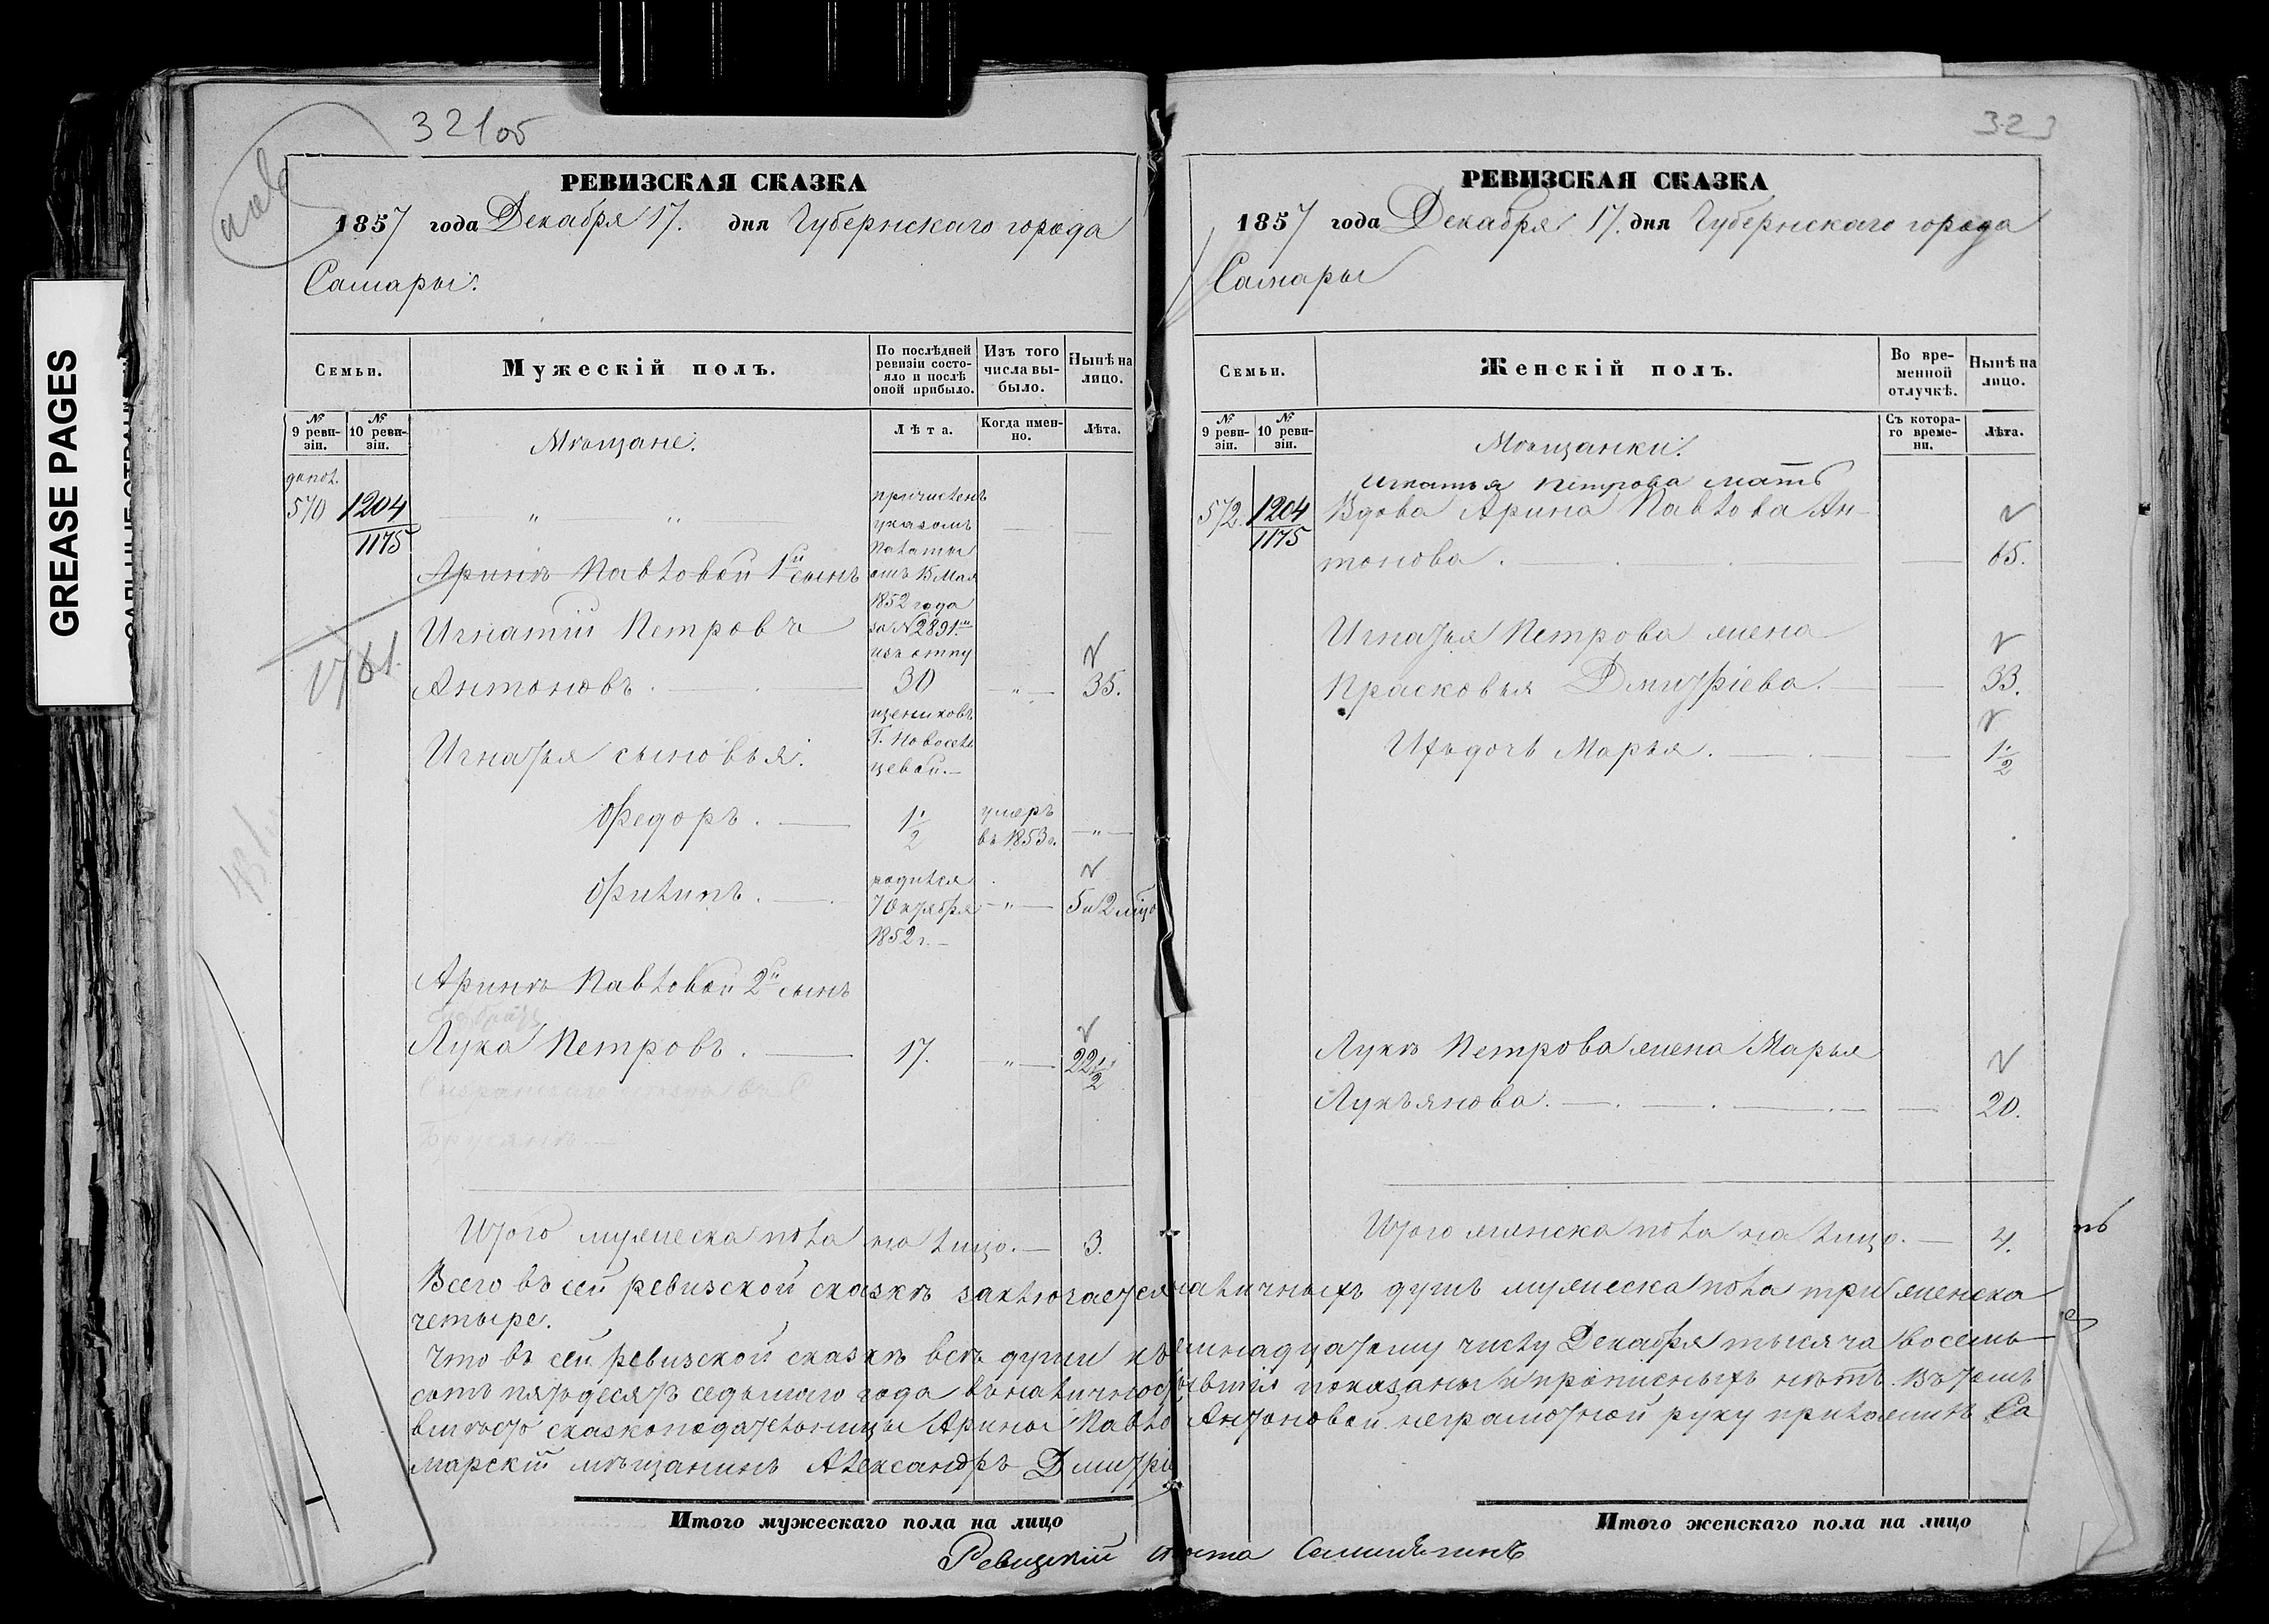 GREASE PAGES
321об
РЕВИЗСКАЯ СКАЗКА
1857 года Декабря 17. дня Губернскаго города
Самары.
Семьи.
Мужескій полъ.
По послѣдней ревизіи состо-
яло и послѣ
оной прибыло.
Изъ того
числа вы-
было.
Нынѣ на
лицо.
№
9 реви-
зіи.
№
10 реви-
зіи.
Мѣщане.
Лѣта.
Когда имен-
но.
Лѣта.
допол.
570
1204
1175
1761.
причисленъ
указомъ
Палаты
отъ 15 Мая
1852 года
за № 2891м
изъ отпу
щениковъ
Г. Новосель
цевой.
Аринѣ Павловой 1й сынъ
Игнатій Петровъ
Антоновъ. 30 " 35.
Игнатья сыновья:
Федоръ. 1/2 умеръ
въ 1853г. "
Филипъ. родился
7 Октября
1852 г. " 5 и 2 мѣц
Аринѣ Павловой 2й сынъ
Лука Петровъ. 17. " 22 1/2
Итого мужеска пола на лицо. 3.
323
РЕВИЗСКАЯ СКАЗКА
1857 года Декабря 17. дня Губернскаго города
Самары
Семьи.
Женскій полъ.
Во вре-
менной
отлучкѣ.
Нынѣ на
лицо.
№
9 реви-
зіи.
№
10 реви-
зіи.
Мѣщанки.
Съ котора-
го време-
ни.
Лѣта.
572.
1204
1175
Игнатья Петрова мать
Вдова Арина Павлова Ан-
тонова. 65.
Игнатья Петрова жена
Прасковья Дмитріева. 33.
Ихъ дочь Марья. 1/2
Луки Петрова жена Марья
Лукъянова. 20.
Итого женска пола на лицо. 4.
Всего въ сей ревизской сказкѣ заключается наличныхъ душъ мужеска пола три женска
четыре.
Что въ сей ревизской сказкѣ всѣ души къ семнадцатому числу Декабря тысяча восемь
сотъ пятьдесятъ седьмаго года въ наличности бывшія показаны и прописныхъ нѣтъ. Въ томъ
вмѣсто сказкоподательницы Арины Павло Антоновой неграмотной руку приложилъ Са
марскій мѣщанинъ Александръ Дмитрі
Итого мужескаго пола на лицо
Итого женскаго пола на лицо